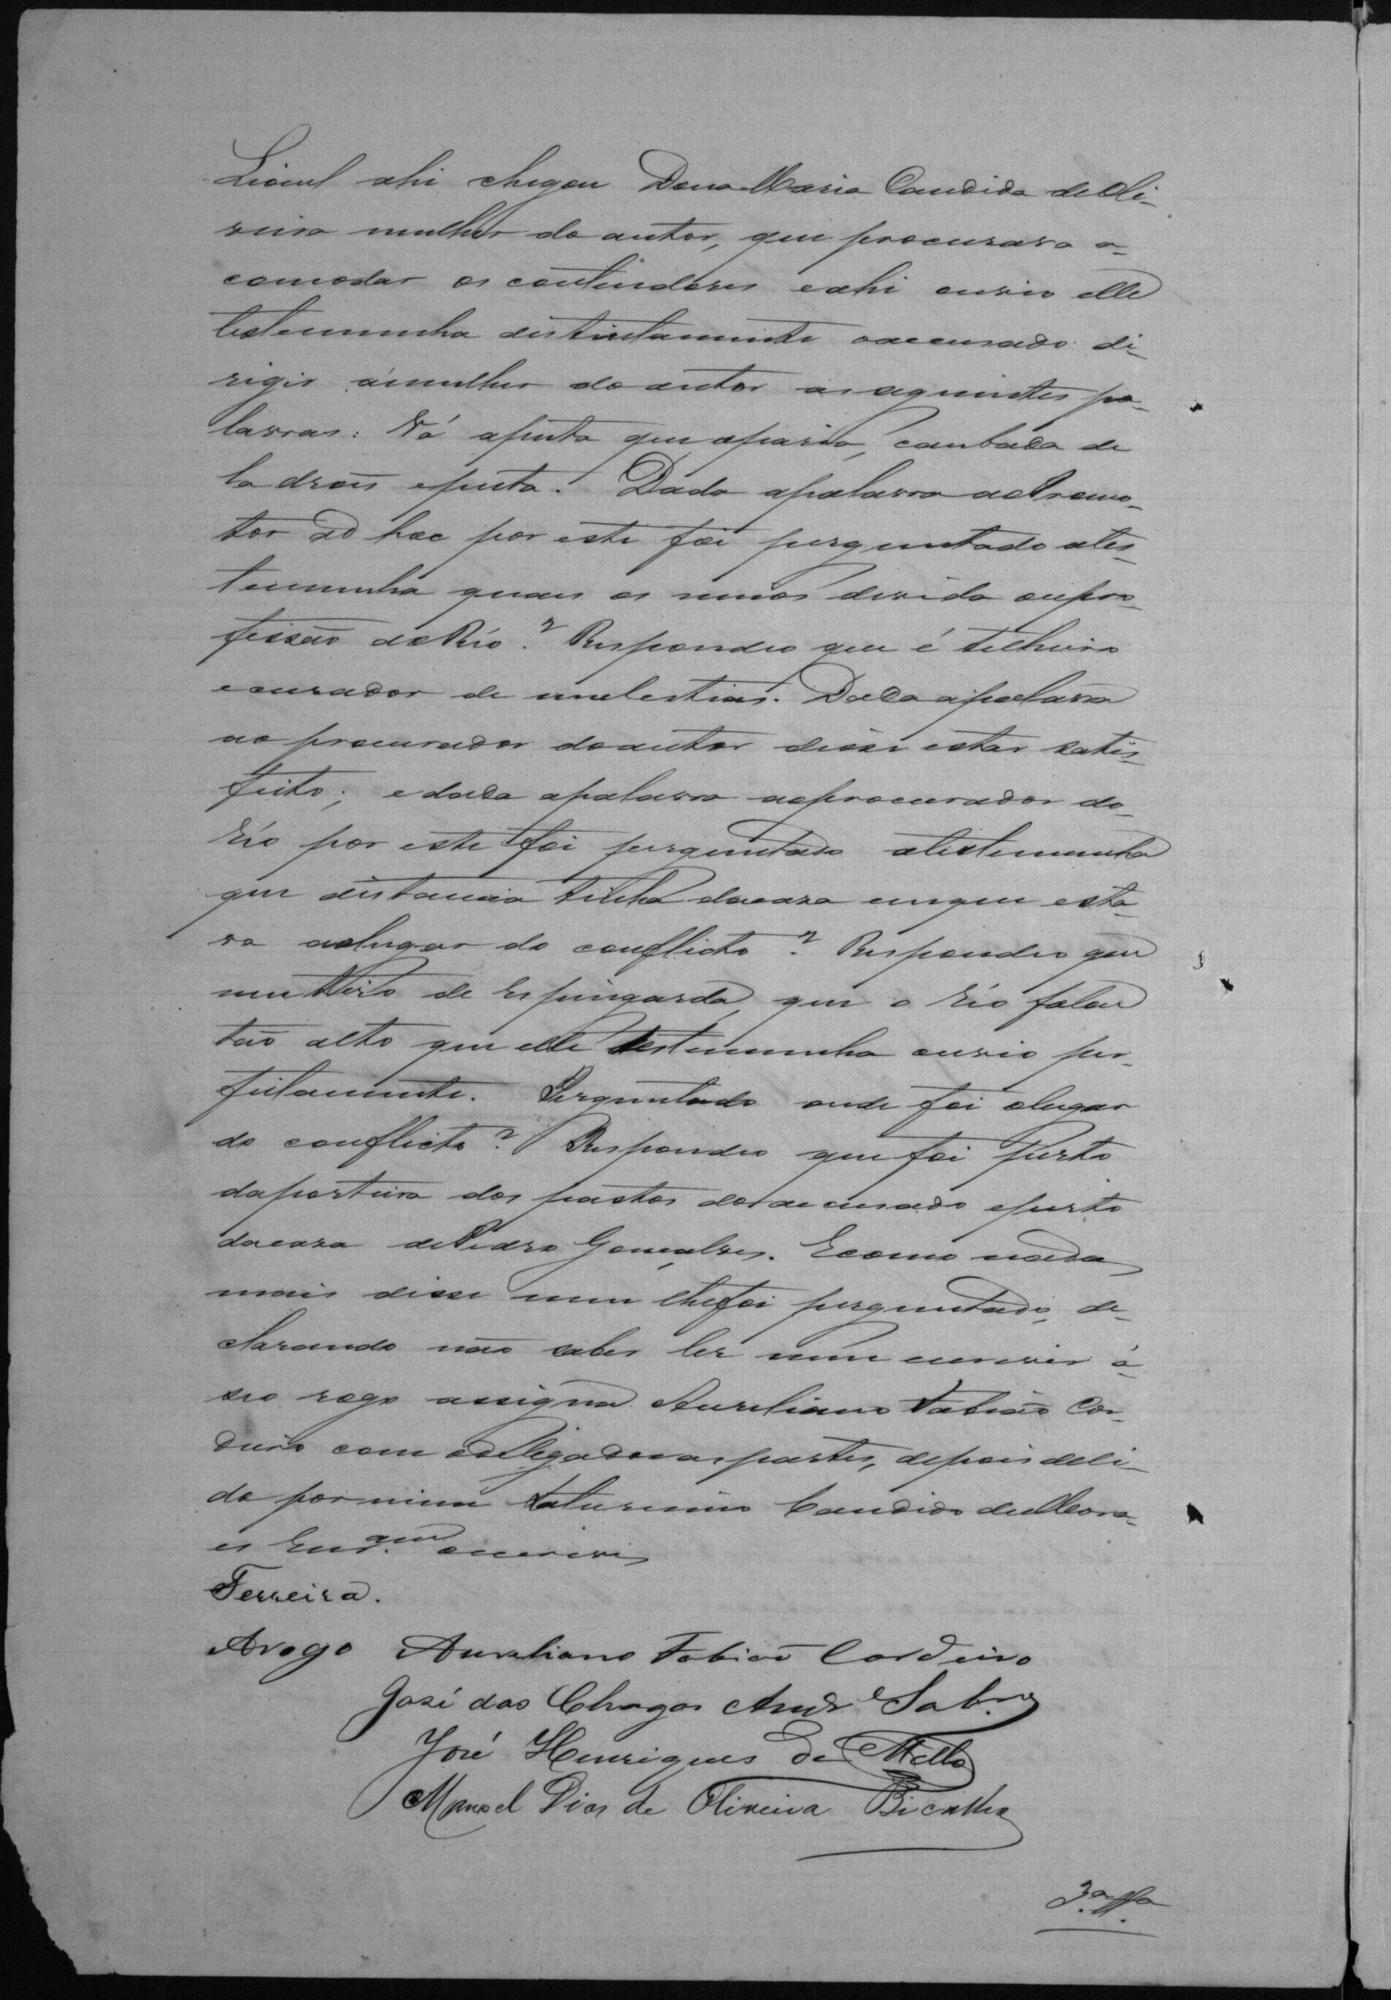 Lionel ahi chegou Dona Maria Candida de Oli-
veira mulher do autor, que procurava a-
comodar os contendores e ahi ouvio elle
testemunha distintamente o accusado di-
rigir á mulher do autor as seguintes pa-
lavras: Vá a puta que a pario, cambada de
ladrões e puta. Dada a palavra ao Promo-
tor ad hoc por este foi perguntado a tes-
temunha quaes os meios de vida ou pro-
fissão do Réo? Respondeo que é telheiro
e curador de molestias. Dada a palavra
ao procurador do autor disse estar satis-
feito; e dada a palavra ao procurador do
Réo por este foi perguntado a testemunha
que distancia tinha da casa em que esta-
va ao lugar do conflicto? Respondeo que
um tiro de espingarda, que o Réo falou
tão alto que elle testemunha ouvio per-
feitamente. Perguntado onde foi o lugar
do conflicto? Respondeo que foi perto
da porteira dos pastos do accusado e perto
da casa de Pedro Gonçalves. E como nada
mais disse nem lhe foi perguntado, de-
clarando não saber ler nem escrever á
seo rogo assigna Aureliano Fabião Cor-
deiro com o delegado e as partes, depois de li-
do por mim Saturnino Candido de Mora-
es que escrevi
Ferreira.
Arogo Aureliano Fabião Cordeiro
José das Chagas Andr.e Sobr.o
José Henriques de Mello
Manoel Dias de Oliveira Bicalho
3.a